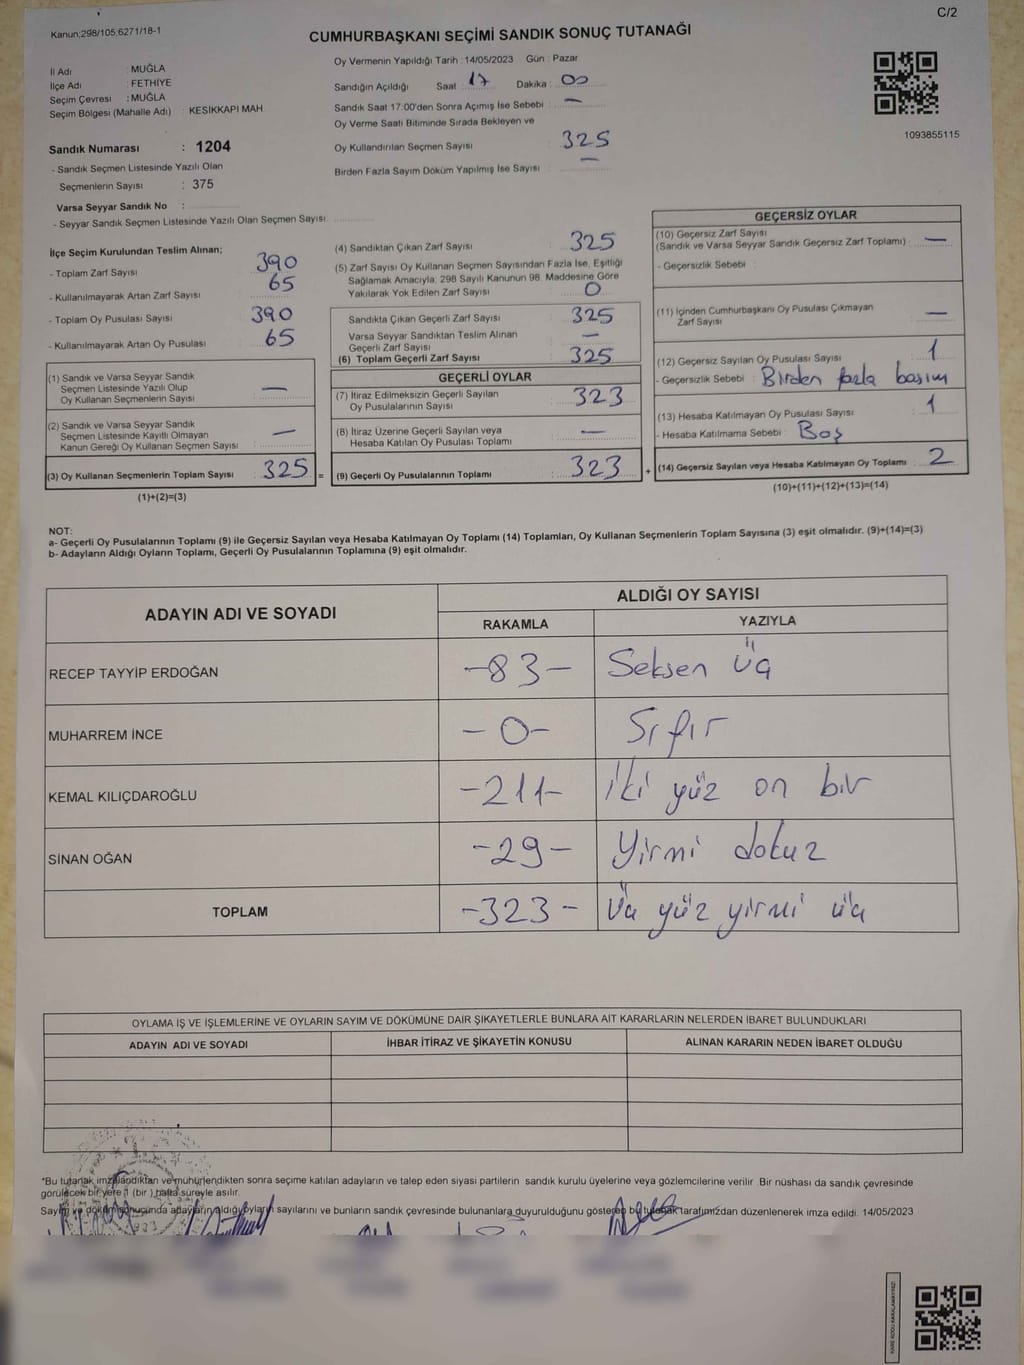 C/2
Kanun;298/105,6271/18-1
CUMHURBAŞKANI SEÇİMİ SANDIK SONUÇ TUTANAĞI
İl Adı : MUĞLA
İlçe Adı : FETHİYE
Seçim Çevresi : MUĞLA
Seçim Bölgesi (Mahalle Adı) : KESİKKAPI MAH
Sandık Numarası : 1204
- Sandık Seçmen Listesinde Yazılı Olan
Seçmenlerin Sayısı : 375
Varsa Seyyar Sandık No :
- Seyyar Sandık Seçmen Listesinde Yazılı Olan Seçmen Sayısı
Oy Vermenin Yapıldığı Tarih : 14/05/2023 Gün : Pazar
Sandığın Açıldığı Saat : 17 Dakika : 00
Sandık Saat 17:00'den Sonra Açımış İse Sebebi : —
Oy Verme Saati Bitiminde Sırada Bekleyen ve
Oy Kullandırılan Seçmen Sayısı : 325
Birden Fazla Sayım Döküm Yapılmış İse Sayısı : —
1093855115
İlçe Seçim Kurulundan Teslim Alınan;
- Toplam Zarf Sayısı : 390
- Kullanılmayarak Artan Zarf Sayısı : 65
- Toplam Oy Pusulası Sayısı : 390
- Kullanılmayarak Artan Oy Pusulası : 65
(1) Sandık ve Varsa Seyyar Sandık
Seçmen Listesinde Yazılı Olup
Oy Kullanan Seçmenlerin Sayısı : —
(2) Sandık ve Varsa Seyyar Sandık
Seçmen Listesinde Kayıtlı Olmayan
Kanun Gereği Oy Kullanan Seçmen Sayısı : —
(3) Oy Kullanan Seçmenlerin Toplam Sayısı : 325 =
(1)+(2)=(3)
(4) Sandıktan Çıkan Zarf Sayısı : 325
(5) Zarf Sayısı Oy Kullanan Seçmen Sayısından Fazla İse, Eşitliği
Sağlamak Amacıyla; 298 Sayılı Kanunun 98. Maddesine Göre
Yakılarak Yok Edilen Zarf Sayısı : 0
Sandıkta Çıkan Geçerli Zarf Sayısı : 325
Varsa Seyyar Sandıktan Teslim Alınan
Geçerli Zarf Sayısı : —
(6) Toplam Geçerli Zarf Sayısı : 325
GEÇERLİ OYLAR
(7) İtiraz Edilmeksizin Geçerli Sayılan
Oy Pusulalarının Sayısı : 323
(8) İtiraz Üzerine Geçerli Sayılan veya
Hesaba Katılan Oy Pusulası Toplamı : —
(9) Geçerli Oy Pusulalarının Toplamı : 323 +
GEÇERSİZ OYLAR
(10) Geçersiz Zarf Sayısı
(Sandık ve Varsa Seyyar Sandık Geçersiz Zarf Toplamı) : —
- Geçersizlik Sebebi :
(11) İçinden Cumhurbaşkanı Oy Pusulası Çıkmayan
Zarf Sayısı : —
(12) Geçersiz Sayılan Oy Pusulası Sayısı : 1
- Geçersizlik Sebebi : Birden fazla basım
(13) Hesaba Katılmayan Oy Pusulası Sayısı : 1
- Hesaba Katılmama Sebebi : Boş
(14) Geçersiz Sayılan veya Hesaba Katılmayan Oy Toplamı : 2
(10)+(11)+(12)+(13)=(14)
NOT:
a- Geçerli Oy Pusulalarının Toplamı (9) ile Geçersiz Sayılan veya Hesaba Katılmayan Oy Toplamı (14) Toplamları, Oy Kullanan Seçmenlerin Toplam Sayısına (3) eşit olmalıdır. (9)+(14)=(3)
b- Adayların Aldığı Oyların Toplamı, Geçerli Oy Pusulalarının Toplamına (9) eşit olmalıdır.
ADAYIN ADI VE SOYADI
ALDIĞI OY SAYISI
RAKAMLA YAZIYLA
RECEP TAYYİP ERDOĞAN -83- Seksen üç
MUHARREM İNCE -0- Sıfır
KEMAL KILIÇDAROĞLU -211- İki yüz on bir
SİNAN OĞAN -29- Yirmi dokuz
TOPLAM -323- Üç yüz yirmi üç
OYLAMA İŞ VE İŞLEMLERİNE VE OYLARIN SAYIM VE DÖKÜMÜNE DAİR ŞİKAYETLERLE BUNLARA AİT KARARLARIN NELERDEN İBARET BULUNDUKLARI
ADAYIN ADI VE SOYADI İHBAR İTİRAZ VE ŞİKAYETİN KONUSU ALINAN KARARIN NEDEN İBARET OLDUĞU
*Bu tutanak imzalandıktan ve mühürlendikten sonra seçime katılan adayların ve talep eden siyasi partilerin sandık kurulu üyelerine veya gözlemcilerine verilir. Bir nüshası da sandık çevresinde
görülecek bir yere 1 (bir ) hafta süreyle asılır.
Sayım ve döküm sonucunda adayların aldığı oyların sayılarını ve bunların sandık çevresinde bulunanlara duyurulduğunu gösteren bu tutanak tarafımızdan düzenlenerek imza edildi. 14/05/2023